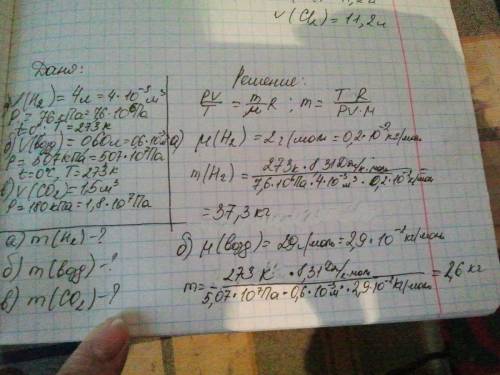 V(Cl₂) = 11,2л
Дано:
V(H₂) = 4л = 4·10⁻³ м³
P = 76 кПа = 76·10⁶ Па
t=0°, T=273к
б) V(возд) = 0,60л = 0,6·10⁻³
P = 507 кПа = 507·10⁴ Па
t=0°C, T=273к
в) V(CO₂) = 1,5 м³
P = 180 кПа = 1,8·10⁷ Па
а) m(H₂) - ?
б) m(возд) - ?
в) m(CO₂) - ?
Решение:
PV/T = m/μ R ; m = T R/PV·M
а) μ(H₂) = 2 г/моль = 0,2·10⁻² кг/моль
m(H₂) = 273к · 8,31 /7,6·10⁶Па · 4·10⁻³ м³ · 0,2·10⁻³ =
= 37,3 кг
б) μ(возд) = 29 г/моль = 2,9·10⁻² кг/моль
m = 273 к · 8,31 /5,07·10⁷Па · 0,6·10⁻³ м³ · 2,9·10⁻² кг/моль = 2,6 кг